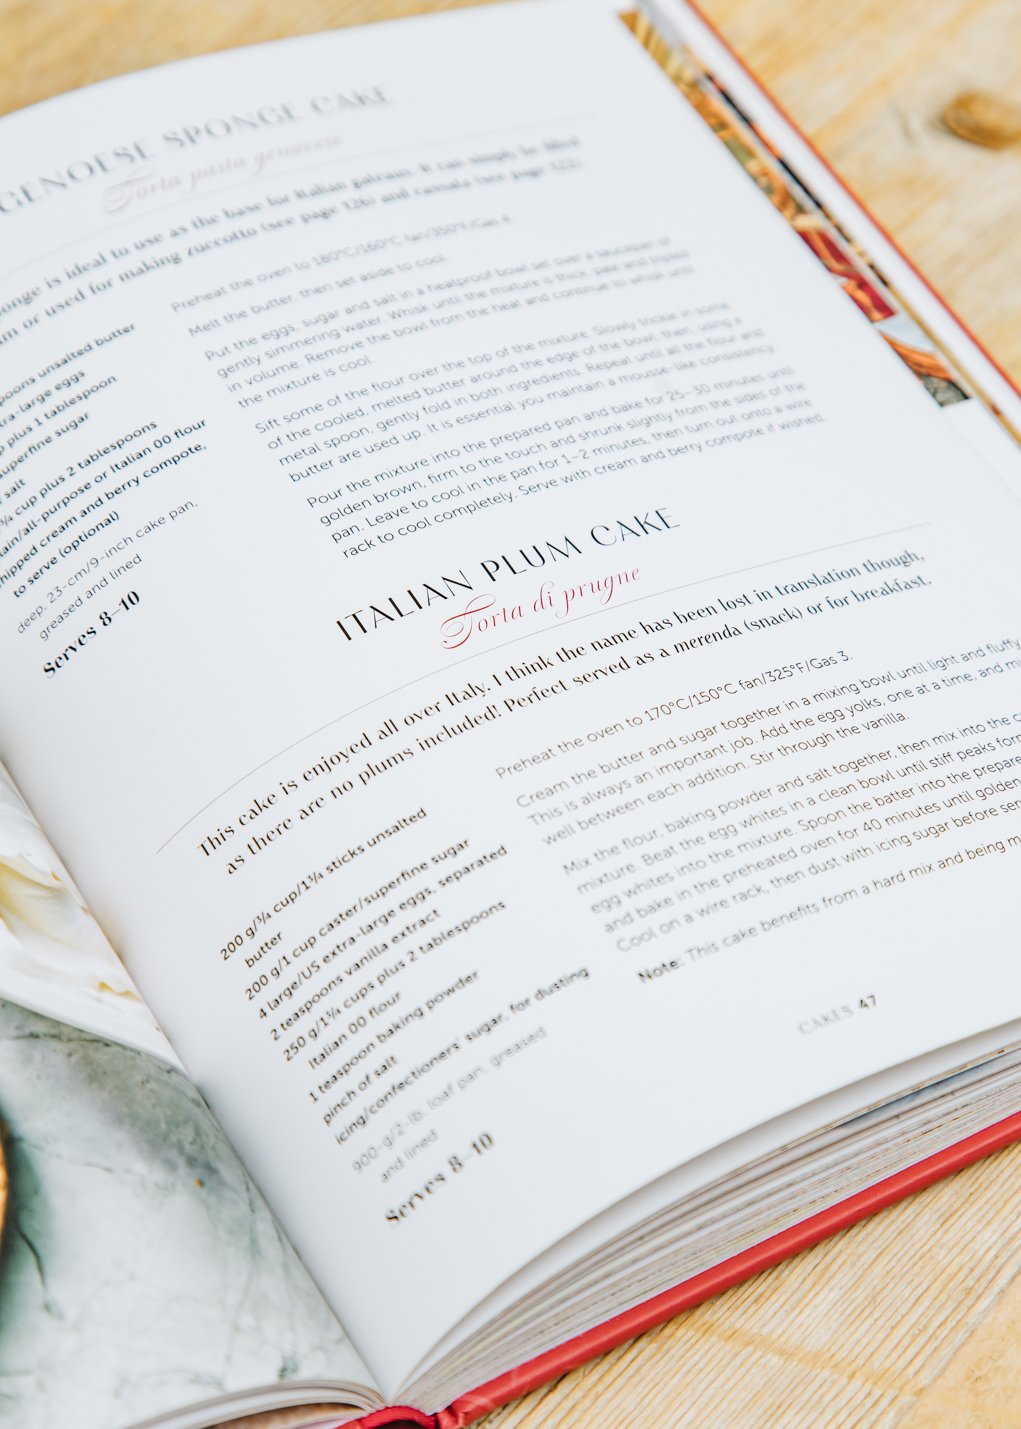 GENOESE SPONGE CAKE
Torta pasta genovese
sponge is ideal to use as the base for Italian gateaux. It can simply be filled
or used for making zuccotto (see page 126) and cassata (see page 122).
spoons unsalted butter
extra-large eggs
plus 1 tablespoon
superfine sugar
salt
¾ cup plus 2 tablespoons
plain/all-purpose or Italian 00 flour
whipped cream and berry compote,
to serve (optional)
deep, 23-cm/9-inch cake pan,
greased and lined
Serves 8–10
Preheat the oven to 180°C/160°C fan/350°F/Gas 4.
Melt the butter, then set aside to cool.
Put the eggs, sugar and salt in a heatproof bowl set over a saucepan of
gently simmering water. Whisk until the mixture is thick, pale and tripled
in volume. Remove the bowl from the heat and continue to whisk until
the mixture is cool.
Sift some of the flour over the top of the mixture. Slowly trickle in some
of the cooled, melted butter around the edge of the bowl, then, using a
metal spoon, gently fold in both ingredients. Repeat until all the flour and
butter are used up. It is essential you maintain a mousse-like consistency.
Pour the mixture into the prepared pan and bake for 25–30 minutes until
golden brown, firm to the touch and shrunk slightly from the sides of the
pan. Leave to cool in the pan for 1–2 minutes, then turn out onto a wire
rack to cool completely. Serve with cream and berry compote if wished.
ITALIAN PLUM CAKE
Torta di prugne
This cake is enjoyed all over Italy. I think the name has been lost in translation though,
as there are no plums included! Perfect served as a merenda (snack) or for breakfast.
200 g/¾ cup/1¾ sticks unsalted
butter
200 g/1 cup caster/superfine sugar
4 large/US extra-large eggs, separated
2 teaspoons vanilla extract
250 g/1¾ cups plus 2 tablespoons
Italian 00 flour
1 teaspoon baking powder
pinch of salt
icing/confectioners' sugar, for dusting
900-g/2-lb. loaf pan, greased
and lined
Serves 8–10
Preheat the oven to 170°C/150°C fan/325°F/Gas 3.
Cream the butter and sugar together in a mixing bowl until light and fluffy.
This is always an important job. Add the egg yolks, one at a time, and
well between each addition. Stir through the vanilla.
Mix the flour, baking powder and salt together, then mix into the
mixture. Beat the egg whites in a clean bowl until stiff peaks
egg whites into the mixture. Spoon the batter into the
and bake in the preheated oven for 40 minutes until golden
Cool on a wire rack, then dust with icing sugar before
Note: This cake benefits from a hard mix and being
CAKES 47